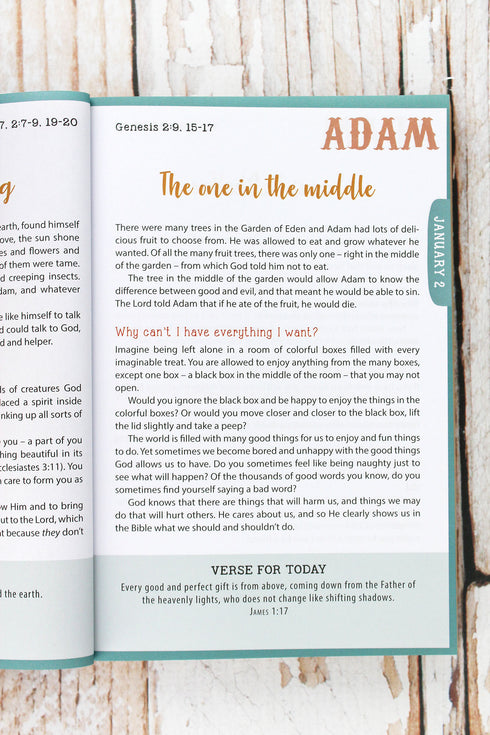 7, 2:7-9, 19-20
g
earth, found himself
ove, the sun shone
es and flowers and
of them were tame.
d creeping insects.
dam, and whatever
e like himself to talk
d could talk to God,
d and helper.
ds of creatures God
laced a spirit inside
nking up all sorts of
you – a part of you
hing beautiful in its
cclesiastes 3:11). You
n care to form you as
ow Him and to bring
out to the Lord, which
at because they don't
d the earth.
Genesis 2:9, 15-17
ADAM
The one in the middle
JANUARY 2
There were many trees in the Garden of Eden and Adam had lots of deli-
cious fruit to choose from. He was allowed to eat and grow whatever he
wanted. Of all the many fruit trees, there was only one – right in the middle
of the garden – from which God told him not to eat.
The tree in the middle of the garden would allow Adam to know the
difference between good and evil, and that meant he would be able to sin.
The Lord told Adam that if he ate of the fruit, he would die.
Why can't I have everything I want?
Imagine being left alone in a room of colorful boxes filled with every
imaginable treat. You are allowed to enjoy anything from the many boxes,
except one box – a black box in the middle of the room – that you may not
open.
Would you ignore the black box and be happy to enjoy the things in the
colorful boxes? Or would you move closer and closer to the black box, lift
the lid slightly and take a peep?
The world is filled with many good things for us to enjoy and fun things
to do. Yet sometimes we become bored and unhappy with the good things
God allows us to have. Do you sometimes feel like being naughty just to
see what will happen? Of the thousands of good words you know, do you
sometimes find yourself saying a bad word?
God knows that there are things that will harm us, and things we may
do that will hurt others. He cares about us, and so He clearly shows us in
the Bible what we should and shouldn't do.
VERSE FOR TODAY
Every good and perfect gift is from above, coming down from the Father of
the heavenly lights, who does not change like shifting shadows.
James 1:17